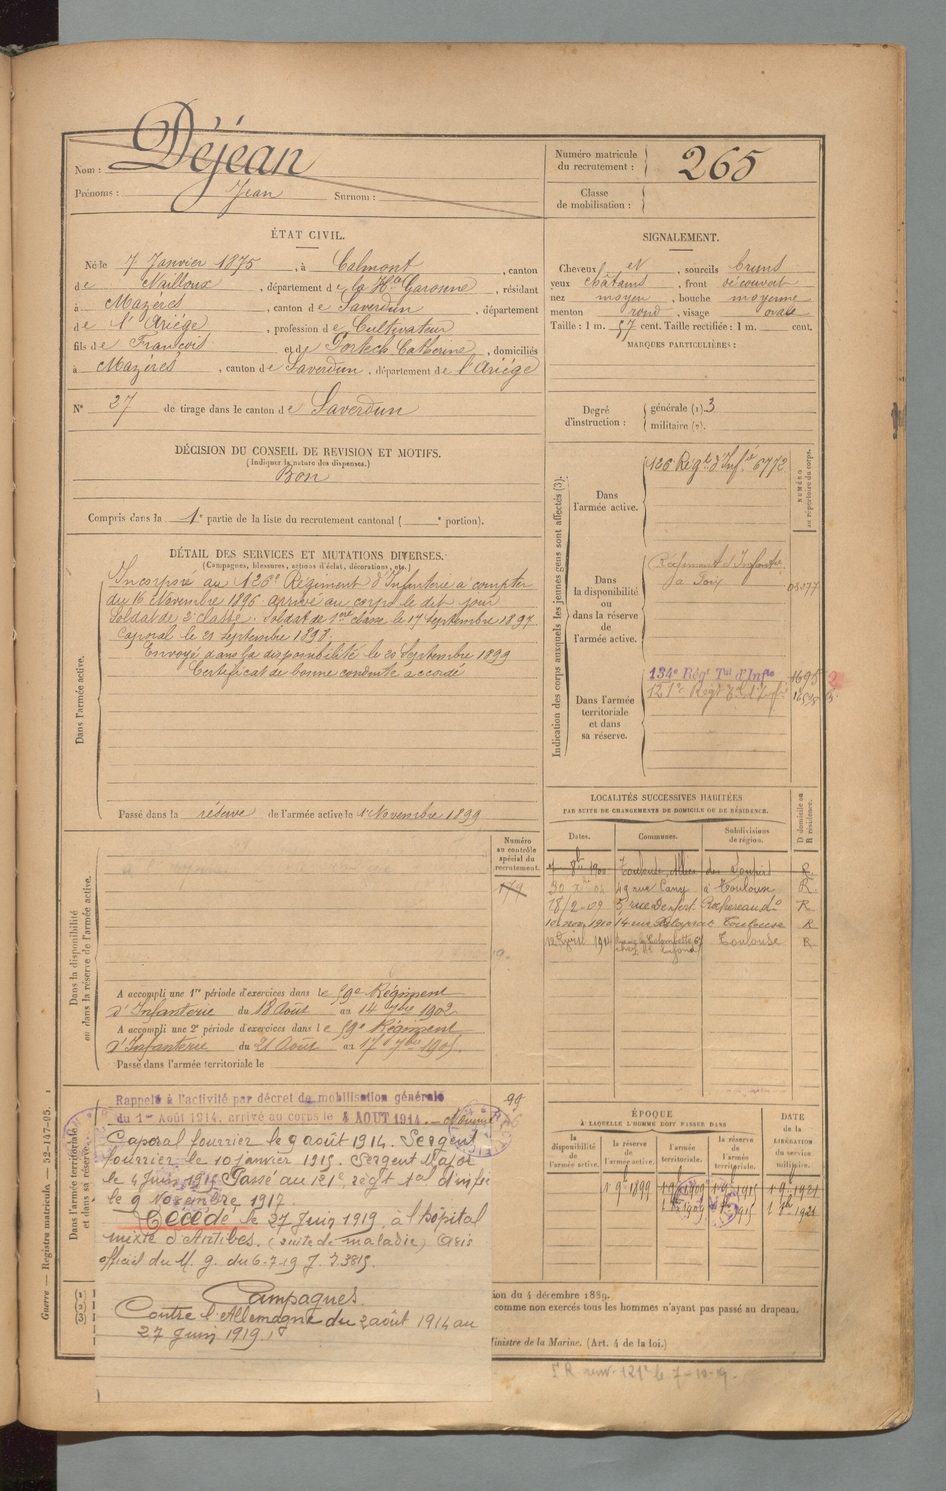 Nom : Déjean
Prénoms : Jean Surnom :
Numéro matricule du recrutement : 265
Classe de mobilisation :
ÉTAT CIVIL.
Né le 7 Janvier 1875, à Calmont, canton
de Nailloux, département de la Hte Garonne, résidant
à Mazères, canton de Saverdun, département
de l'Ariége, profession de Cultivateur
fils de François et de Portech Catherine, domiciliés
à Mazères, canton de Saverdun, département de l'Ariége
N° 27 de tirage dans le canton de Saverdun
SIGNALEMENT.
Cheveux et sourcils bruns
yeux châtains, front découvert
nez moyen, bouche moyenne
menton rond, visage ovale
Taille : 1 m. 57 cent. Taille rectifiée : 1 m. cent.
MARQUES PARTICULIÈRES :
Degré d'instruction : générale (1). 3
militaire (2).
DÉCISION DU CONSEIL DE REVISION ET MOTIFS.
(Indiquer la nature des dispenses.)
Bon
Compris dans la 1e partie de la liste du recrutement cantonal ( e portion).
DÉTAIL DES SERVICES ET MUTATIONS DIVERSES.
(Campagnes, blessures, actions d'éclat, décorations, etc.)
Dans l'armée active.
Incorporé au 126e Régiment d'Infanterie à compter
du 16 Novembre 1896 arrivé au corps le dit jour
Soldat de 2e classe. Soldat de 1ère classe le 17 Septembre 1897.
Caporal le 21 Septembre 1898.
Envoyé dans la disponibilité le 20 Septembre 1899
Certificat de bonne conduite accordé
Passé dans la réserve de l'armée active le 1er Novembre 1899
Indication des corps auxquels les jeunes gens sont affectés (3).
NUMÉRO au répertoire du corps.
Dans l'armée active. 126 Régt d'Infie 6772
Dans la disponibilité ou dans la réserve de l'armée active. Régiment d'Infantie
de Foix 03077
Dans l'armée territoriale et dans sa réserve. 134e Régt Tal d'Infie 1695
121e Regt
LOCALITÉS SUCCESSIVES HABITÉES
PAR SUITE DE CHANGEMENTS DE DOMICILE OU DE RÉSIDENCE.
D domicile ou R résidence.
Dates. Communes. Subdivisions de région.
1900 Toulouse, Allées des Soupirs R
30 Xbre 02 49 rue Cany à Toulouse R
18/2-09 5 rue Denfert Rochereau do R
10 nov. 1910 14 rue Toulouse R
12 Avril 1914 la Colombette 67 Toulouse R
chez
Dans la disponibilité ou dans la réserve de l'armée active.
Numéro au contrôle spécial du recrutement.
179
A accompli une 1re période d'exercices dans le 59e Régiment
d'Infanterie du 18 Août au 14 7bre 1902
A accompli une 2e période d'exercices dans le 59e Régiment
d'Infanterie du 21 Août au 17 7bre 1905.
Passé dans l'armée territoriale le
Dans l'armée territoriale et dans sa réserve.
Rappelé à l'activité par décret de mobilisation générale
du 1er Août 1914. arrivé au corps le 4 AOUT 1914.
Caporal fourrier le 9 août 1914. Sergent
fourrier le 10 janvier 1915. Sergent Major
le 4 Juin 1915 Passé au 121e régt tal d'infie
le 9 Novembre 1917.
Décédé le 27 Juin 1919, à l'hôpital
mixte d'Antibes. (suite de maladie) Avis
officiel du M. g. du 6-7-19 J. 2.3815.
Campagnes
Contre l'Allemagne du 2 août 1914 au
27 Juin 1919.
ÉPOQUE
À LAQUELLE L'HOMME DOIT PASSER DANS
la disponibilité de l'armée active. la réserve de l'armée active. l'armée territoriale. la réserve de l'armée territoriale.
DATE de la LIBÉRATION du service militaire.
1 9bre 1899 1 9bre 1909 1 9bre 1915 1 9bre 1921
1 1909 1 1915 1 1921
ion du 4 décembre 1889.
comme non exercés tous les hommes n'ayant pas passé au drapeau.
Ministre de la Marine. (Art. 4 de la loi.)
121e le 7-10-19.
Guerre — Registre matricule. — 52-147-95.